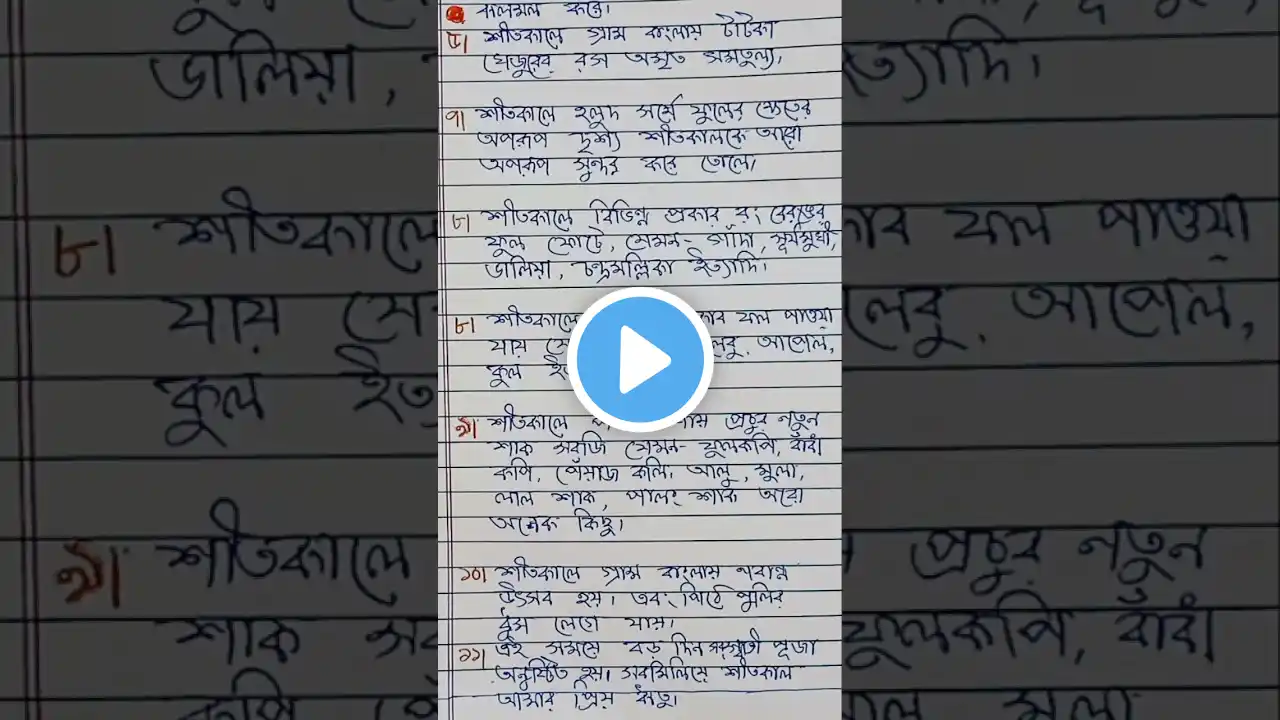 ঝলমল করে।
৬। শীতকালে গ্রাম বাংলায় টাটকা
খেজুরের রস অমৃত সমতুল্য।
৭। শীতকালে হলুদ সর্ষে ফুলের ক্ষেতের
অপরূপ দৃশ্য শীতকালকে আরো
অপরূপ সুন্দর করে তোলে।
৮। শীতকালে বিভিন্ন প্রকার রং বেরঙের
ফুল ফোটে, যেমন- গাঁদা, সূর্যমুখী,
ডালিয়া, চন্দ্রমল্লিকা ইত্যাদি।
৮। শীতকালে ফল পাওয়া
যায় লেবু, আপেল,
কুল
৯। শীতকালে প্রচুর নতুন
শাক সবজি যেমন- ফুলকপি, বাঁধা
কপি, পেঁয়াজ কলি। আলু, মুলা,
লাল শাক, পালং শাক আরো
অনেক কিছু।
১০। শীতকালে গ্রাম বাংলায় নবান্ন
উৎসব হয়। এবং পিঠে পুলির
ধুম লেগে যায়।
১১। এই সময়ে বড়দিন সরস্বতী পূজা
অনুষ্ঠিত হয়। সবমিলিয়ে শীতকাল
আমার প্রিয় ঋতু।